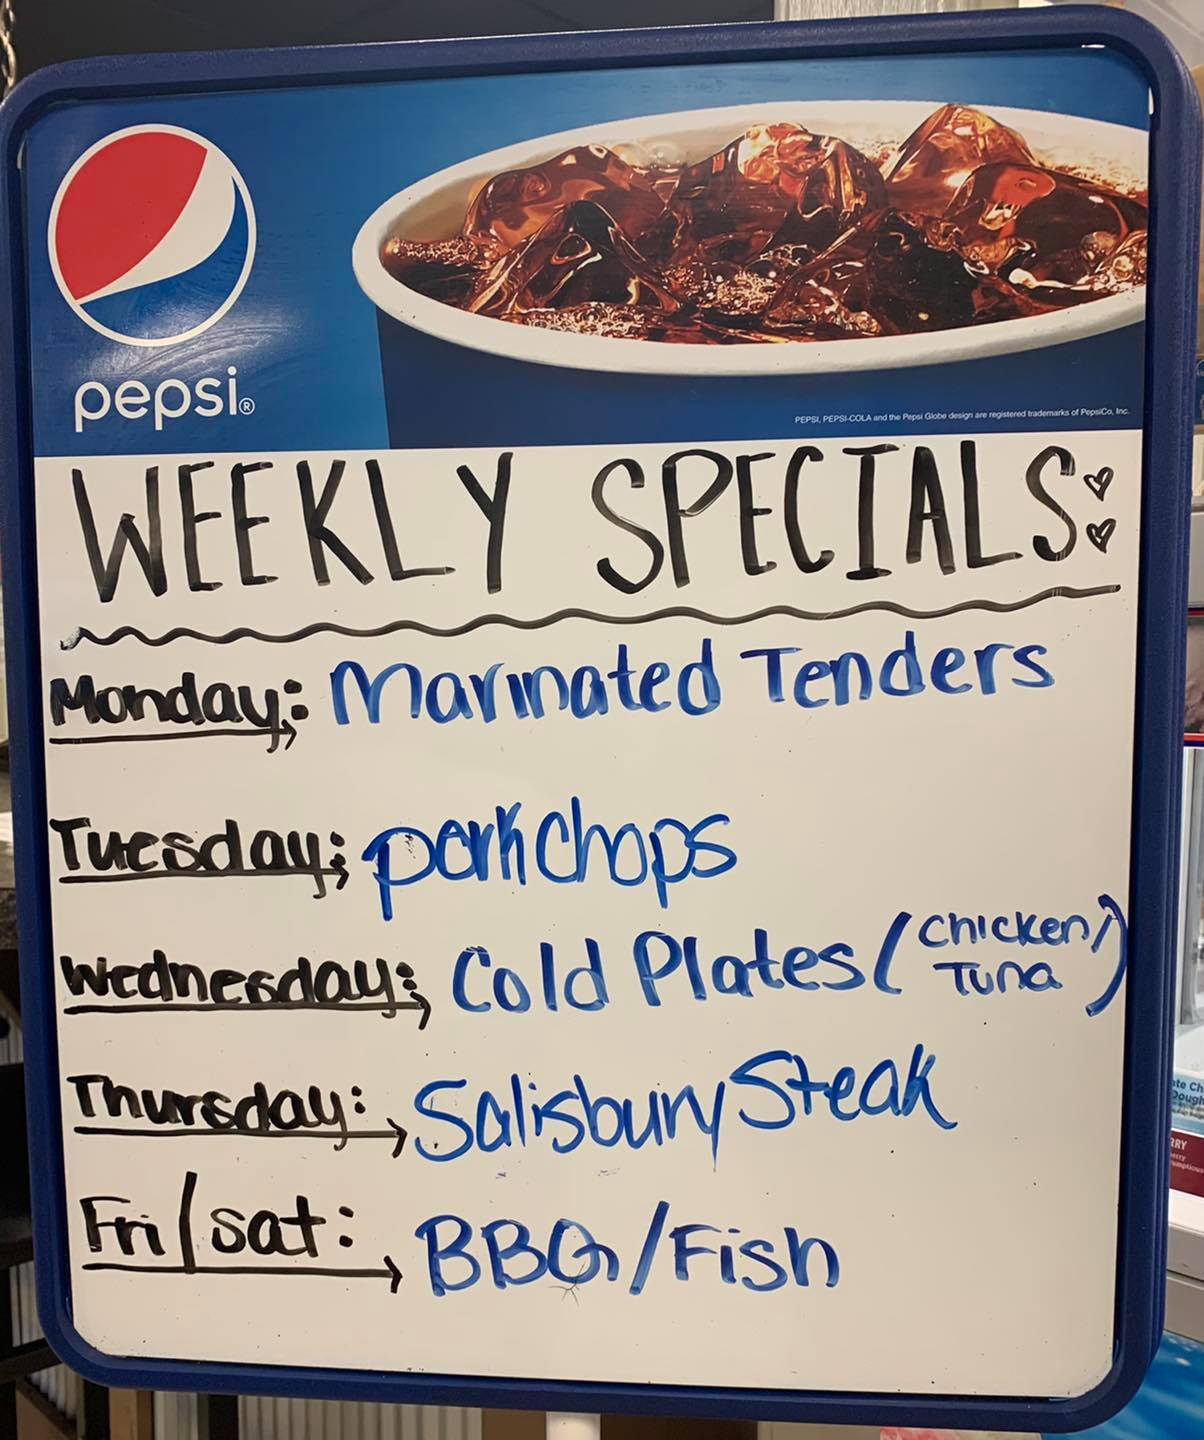 pepsi®
PEPSI, PEPSI-COLA and the Pepsi Globe design are registered trademarks of PepsiCo, Inc.
WEEKLY SPECIALS:
Monday: Marinated Tenders
Tuesday: porkchops
Wednesday: Cold Plates (Chicken/
Tuna)
Thursday: Salisbury Steak
Fri/sat: BBQ/Fish